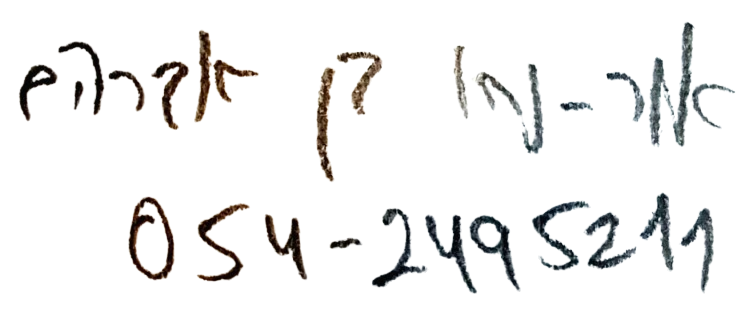 אור-עמי בן אברהם
054-2495211